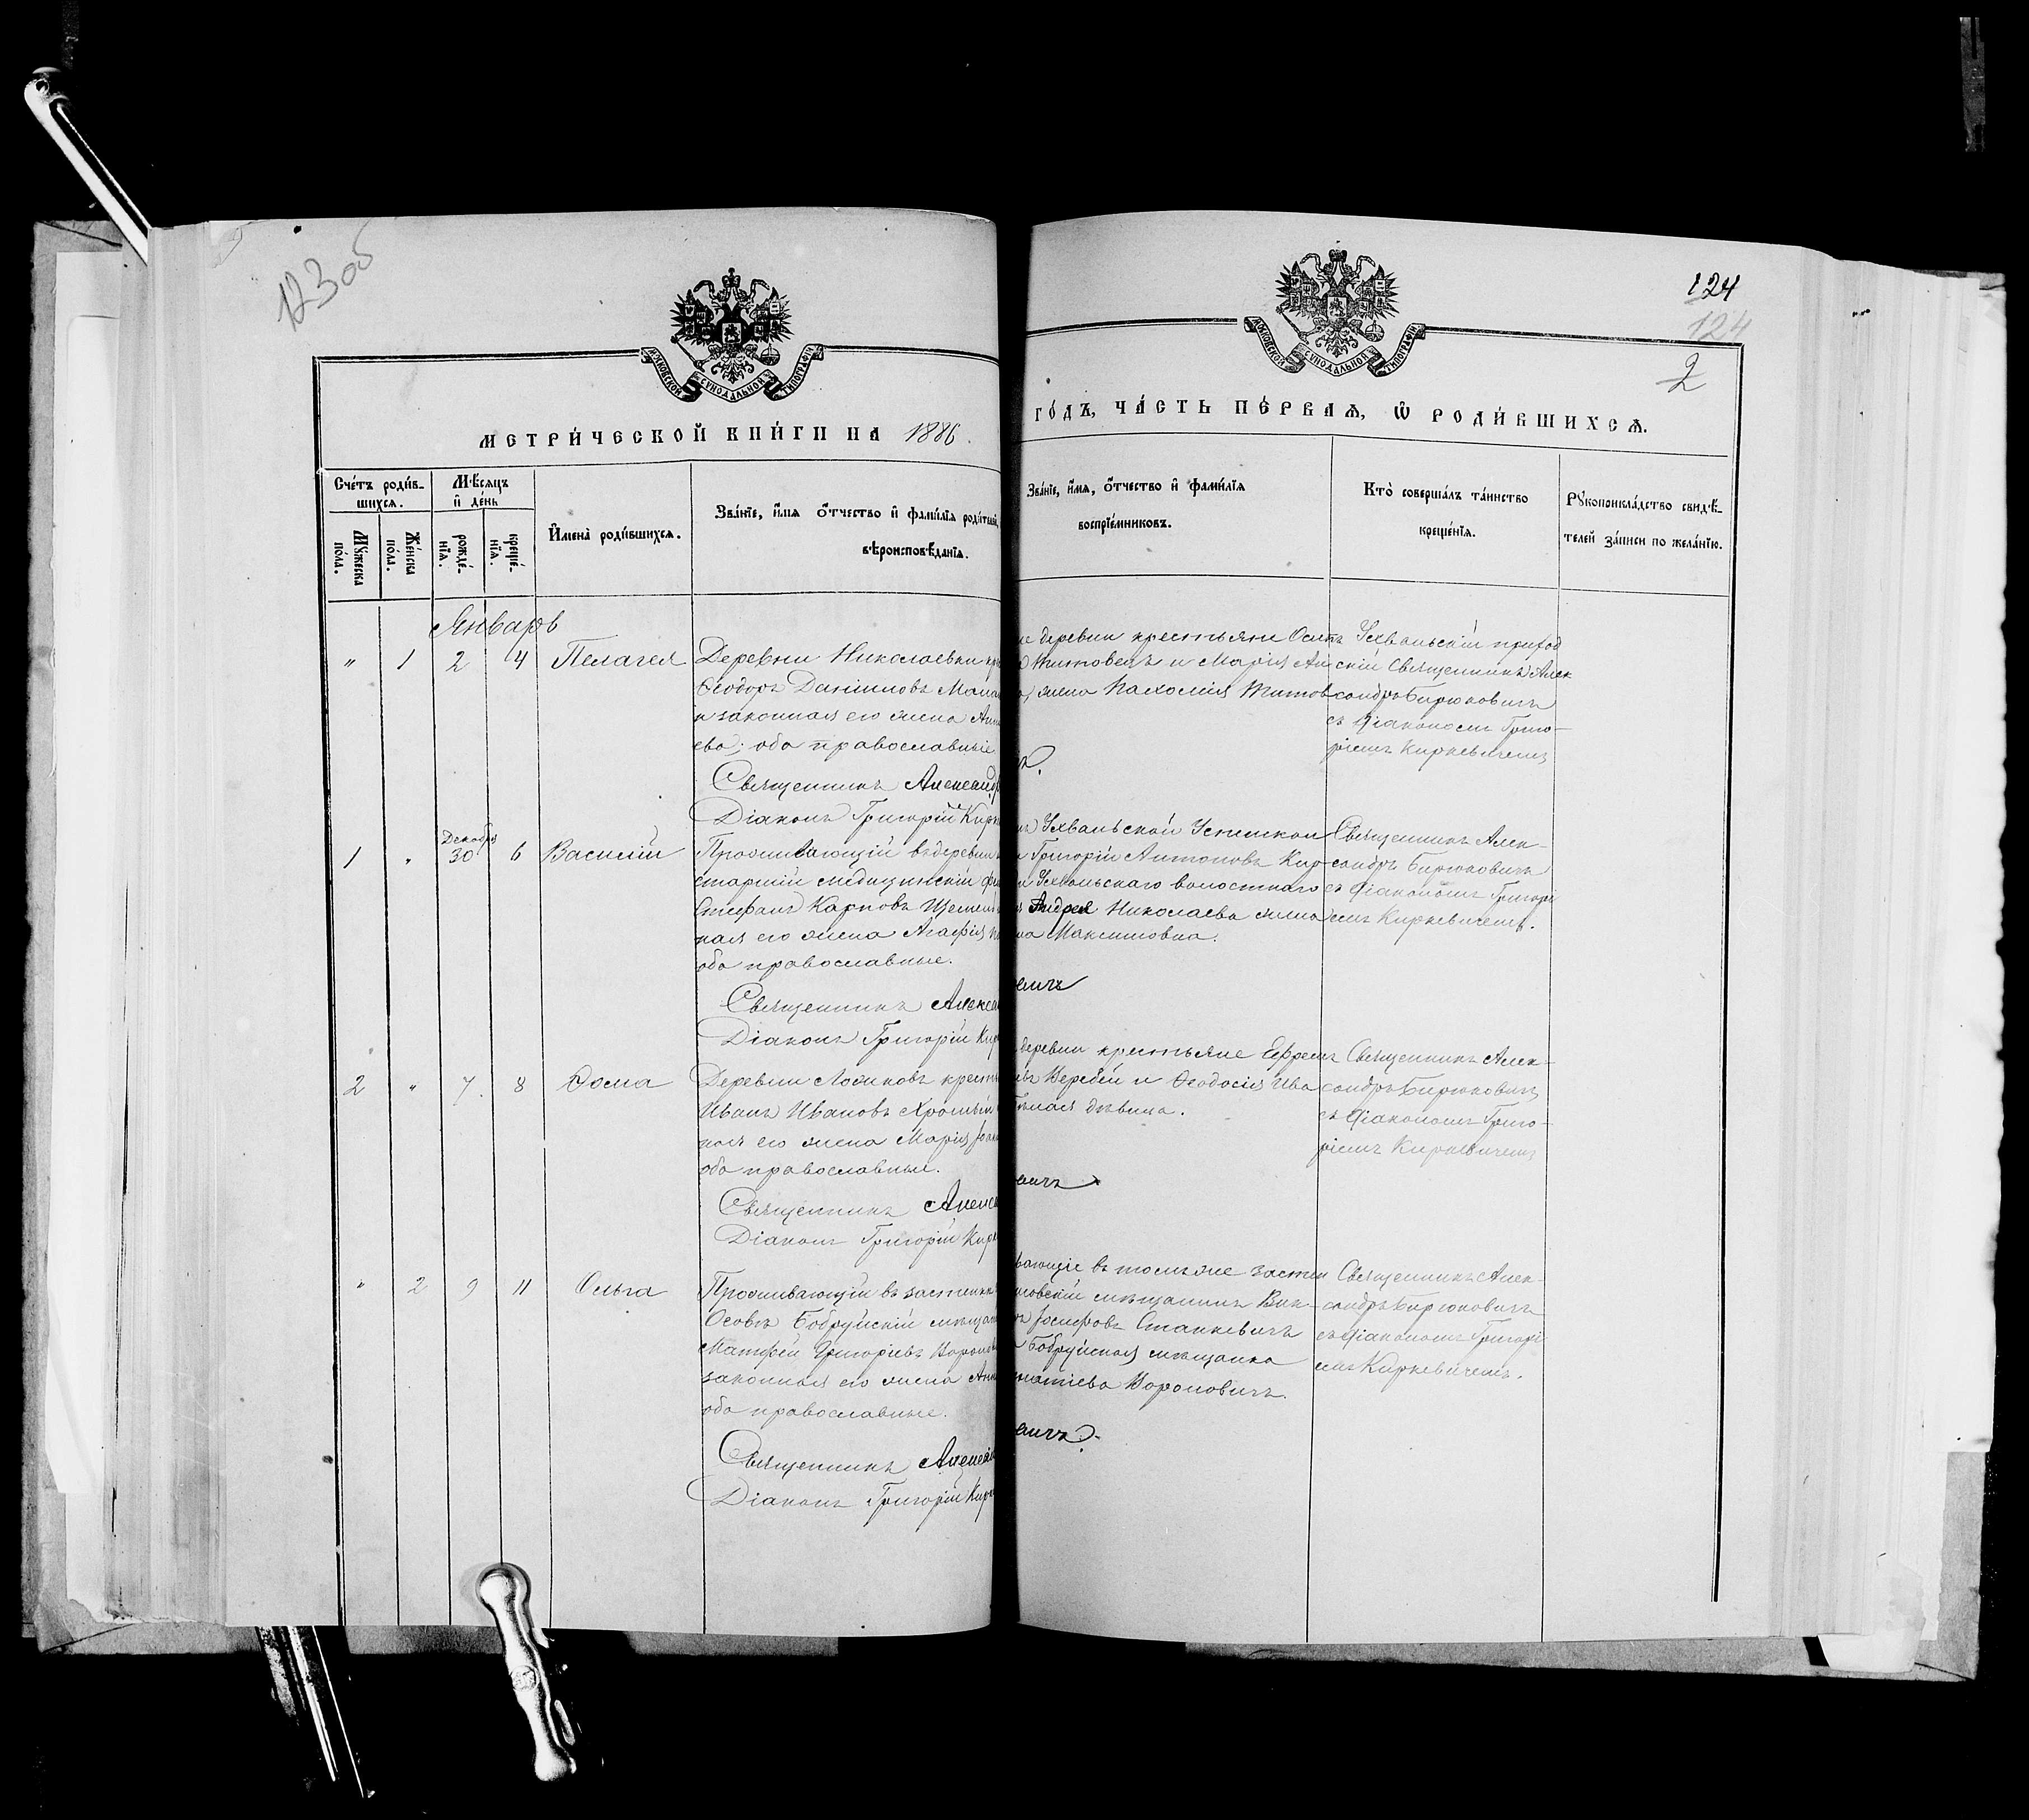 123 об
МОСКОВСКОЙ СУНОДАЛЬНОЙ ТИПОГРАФІИ
МЕТРИ́ЧЕСКОЙ КНИ́ГИ НА 1886.
Сче́тъ роди́в-
шихся.
Мѣ́сяцъ
и҆ де́нь
Мꙋ́жеска
по́ла.
Же́нска
по́ла.
рожде́-
нїѧ.
креще́-
нїѧ.
И҆мена̀ роди́вшихся.
Зва́нїе, и҆́мя ѻ҆́тчество и҆ фами́лїя роди́телей,
вѣроисповѣ́данїя.
Январь
" 1 2 4 Пелагея
Деревни Николаевки
Ѳеодоръ Даніиловъ
и законная его жена
ева; оба православные
Священникъ Александ
Діаконъ Григорій Кирк
1 " Декабря 30 6 Василій
Проживающій въ деревни
старшій медицинскій
Стефанъ Карповъ
ная его жена Агафія
оба православные.
Священникъ Алекса
Діаконъ Григорій Кир
2 " 7. 8 Ѳома
Деревни крест
Иванъ Ивановъ
ная его жена Марія
оба православныя.
Священникъ Алекс
Діаконъ Григорій Кирк
" 2 9 11 Ольга
Проживающій въ застенкѣ
Осовѣ Бобруйскій мѣщан
Матфей Григоріевъ Воронов
законная его жена Анн
оба православные.
Священникъ Алекса
Діаконъ Григорій Кирк
124
124
2
МОСКОВСКОЙ СУНОДАЛЬНОЙ ТИПОГРАФІИ
ГО́ДЪ, ЧА́СТЬ ПЕ́РВАѦ, Ѽ РОДИ́ВШИХСѦ.
Зва́нїе, и҆́мя, ѻ҆́тчество и҆ фами́лїя
воспрїе́мниковъ.
Кто̀ соверша́лъ та́инство
креще́нїя.
Рꙋкоприкла́дство свидѣ́-
телей за́писи по жела́нїю.
же деревни крестьяне Осипъ
Титовецъ и Марія
жена Пахомія Титов
Ухвальскій приход
скій Священникъ Алек
сандръ Бирюковичъ
съ Діакономъ Григо-
ріемъ Киркевичемъ
ъ Ухвальской
Григорій Антоновъ Кир-
Ухвальскаго волостнаго
Андрея Николаева жена
на Максимовна.
Священникъ Алек-
сандръ Бирюковичъ
съ Діакономъ Григорі
емъ Киркевичемъ.
вичъ
деревни крестьяне Ефремъ
Веребей и Ѳеодосія Ива
дѣвица.
Священникъ Алек-
сандръ Бирюковичъ
съ Діакономъ Григо-
ріемъ Киркевичемъ
вичъ
вающіе въ томъ же застен
мѣщанинъ Вик-
ъ Іосифовъ Станкевичъ
Бобруйская мѣщанка
натіева Вороновичъ.
Священникъ Алек-
сандръ Бирюковичъ
съ Діакономъ Григорі
емъ Киркевичемъ.
вичъ.